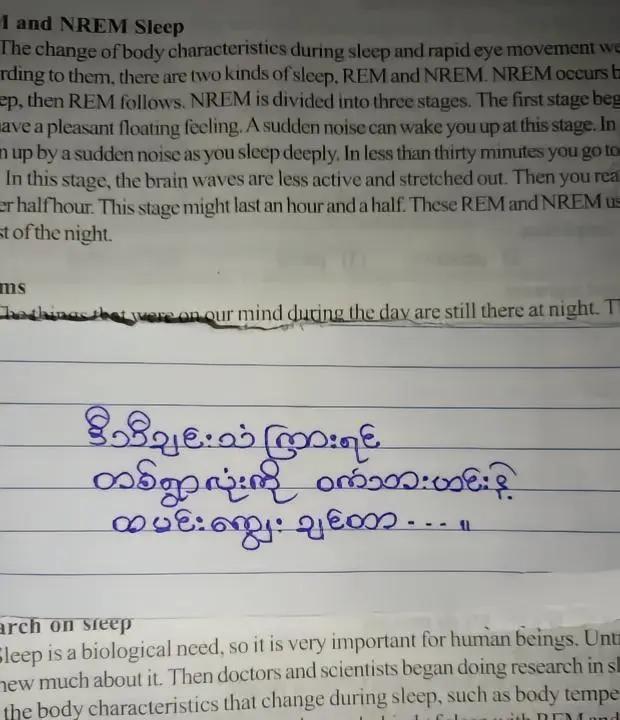 M and NREM Sleep
The change of body characteristics during sleep and rapid eye movement we
rding to them, there are two kinds of sleep, REM and NREM. NREM occurs b
ep, then REM follows. NREM is divided into three stages. The first stage beg
ave a pleasant floating feeling. A sudden noise can wake you up at this stage. In
n up by a sudden noise as you sleep deeply. In less than thirty minutes you go to
In this stage, the brain waves are less active and stretched out. Then you rea
er half hour. This stage might last an hour and a half. These REM and NREM us
st of the night.
ms
The things that were on our mind during the day are still there at night. T
ဒီသီချင်းသံကြားရင်
တစ်ရွာလုံးကို ဝက်သားဟင်းနဲ့
ထမင်းကျွေးချင်တာ - - - ။
arch on sleep
Sleep is a biological need, so it is very important for human beings. Unti
new much about it. Then doctors and scientists began doing research in sl
the body characteristics that change during sleep, such as body tempe